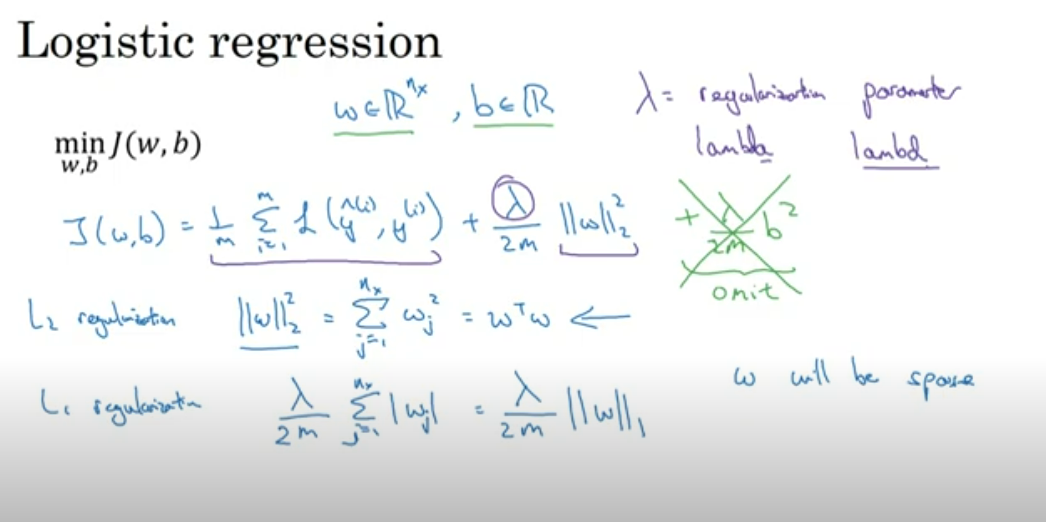 Logistic regression
w∈ℝ^{n_x}, b∈ℝ
λ = regularization parameter
lambda lambd
min_{w,b} J(w, b)
J(w,b) = 1/m Σ_{i=1}^{m} L(ŷ^{(i)}, y^{(i)}) + λ/2m ||w||_2^2 + λ/2m b^2
omit
L_2 regularization ||w||_2^2 = Σ_{j=1}^{n_x} w_j^2 = w^T w ←
w will be sparse
L_1 regularization λ/2m Σ_{j=1}^{n_x} |w_j| = λ/2m ||w||_1